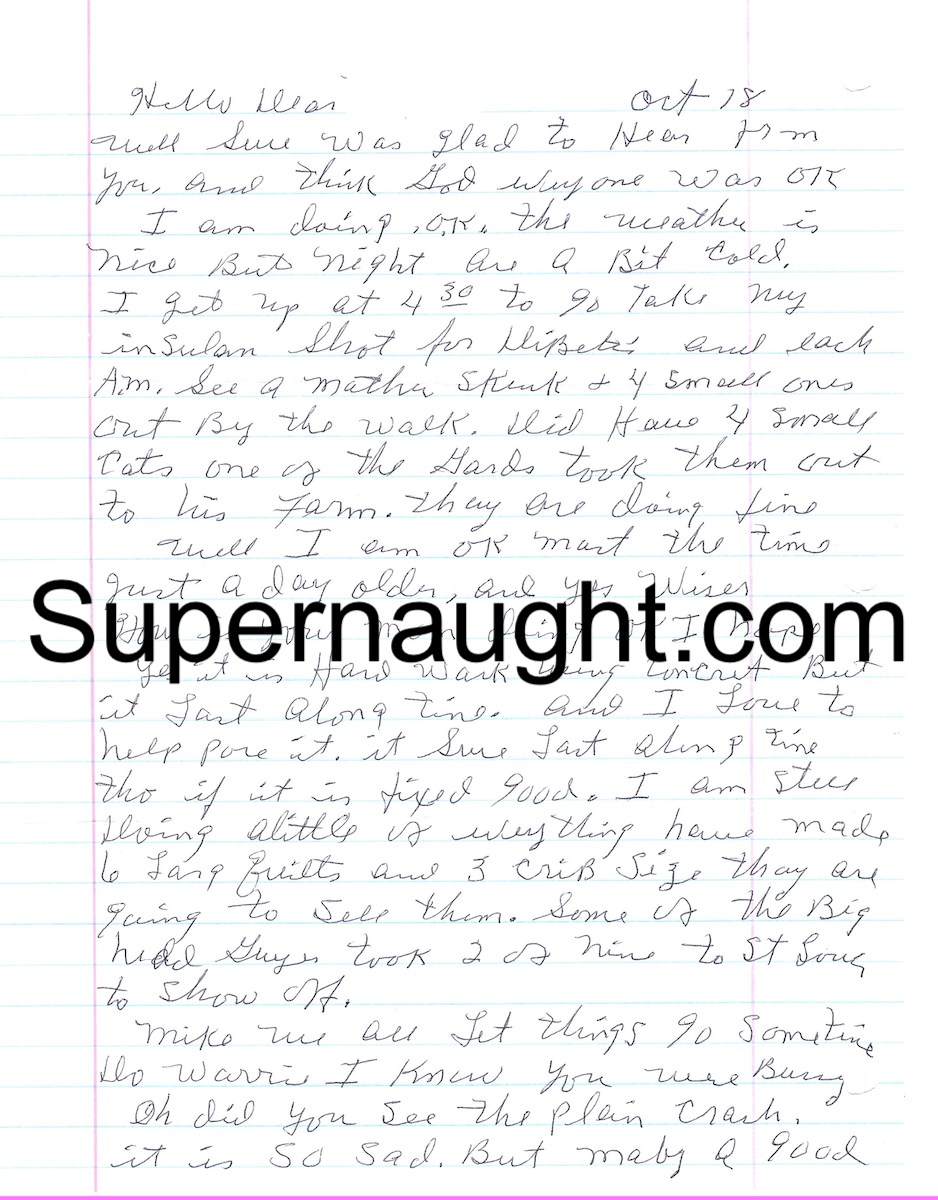 Hello Dear Oct 18
Well Sure was glad to Hear From
you, and think God everyone was OK
I am doing .O.K. the weather is
Nice But Night are a Bit Cold.
I get up at 4 30 to go Take my
insulan Shot for DiBetis and each
Am. See a mather Skunk & 4 small ones
out By the walk. Did Have 4 small
Cats one of the Gards took them out
to his Farm. thay are doing fine
Well I am OK mast the time
Just a day older, and yes Wiser
How is your doing ok I hope
Supernaught.com
Yes it is Hard Wark concret But
it Last along time. And I Love to
help pore it. it Sure Last along time
tho if it is fixed good. I am still
Doing alittle of everything have made
6 Larg Quilts and 3 CriB Size thay are
going to Sell them. Some of the Big
head Guyes took 2 of Nine to St Louis
to show off.
Mike we all Let things go Sometime
Do Warrie I Know you were Bussy
Oh did you See the plain Crash.
it is So Sad. But maby a good